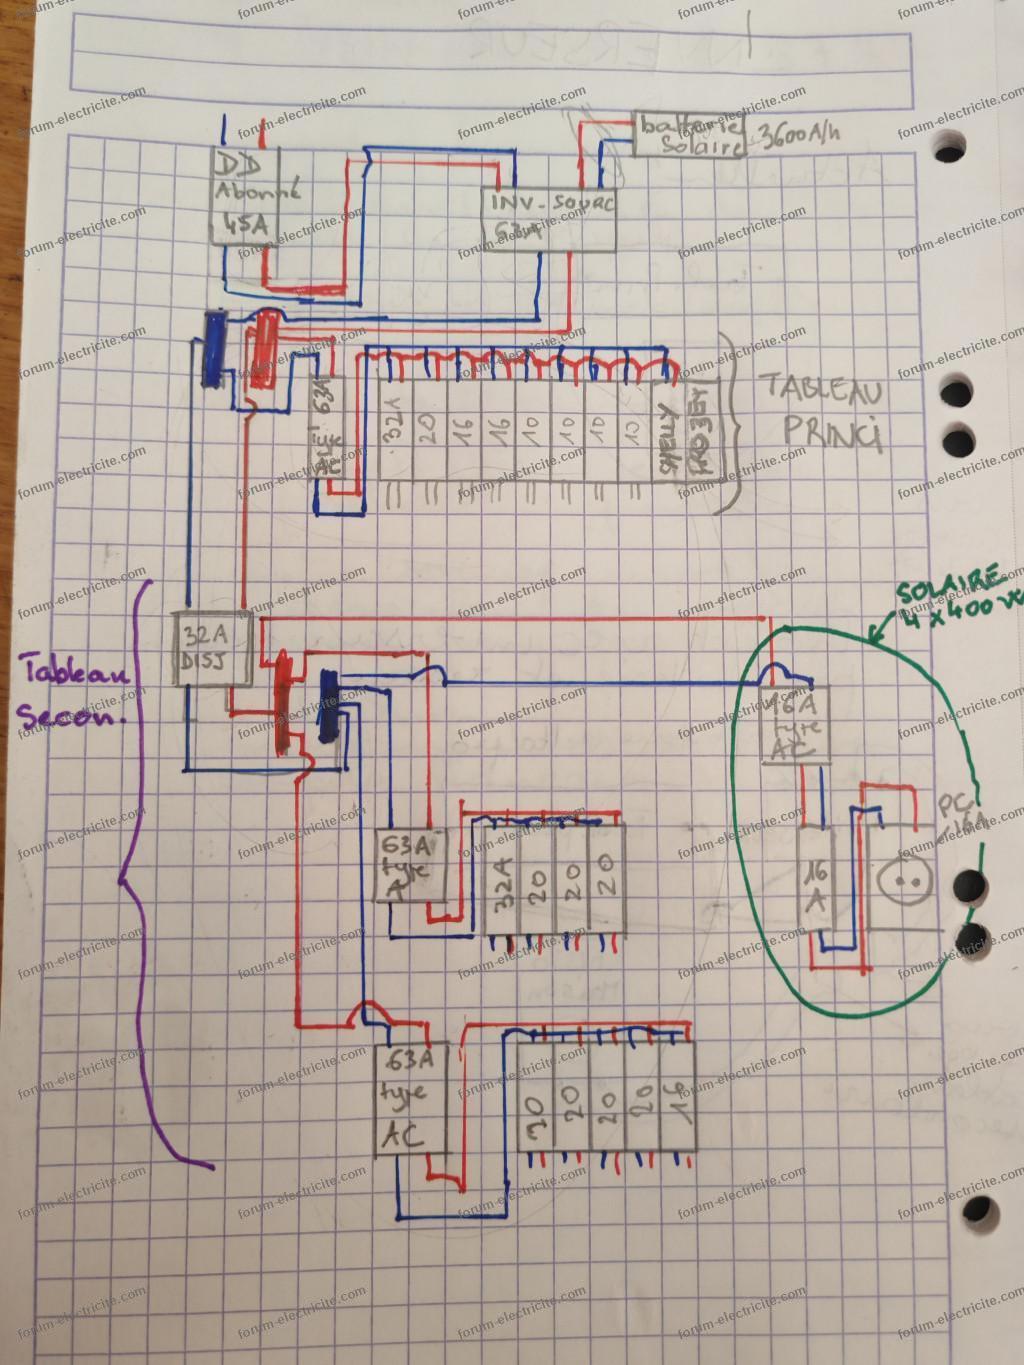 DD
Abonné
45A
batterie
Solaire
3600A/h
INV-SOURC
63A
63A
32A
20
16
16
10
10
10
10
SHELLY
PRO3EM
TABLEAU
PRINCI
SOLAIRE
4 x 400 
32A
DISJ
Tableau
Secon.
16A
type
AC
PC
16A
63A
type
A
32A
20
20
20
16
A
63A
type
AC
20
20
20
20
16
forum-electricite.com